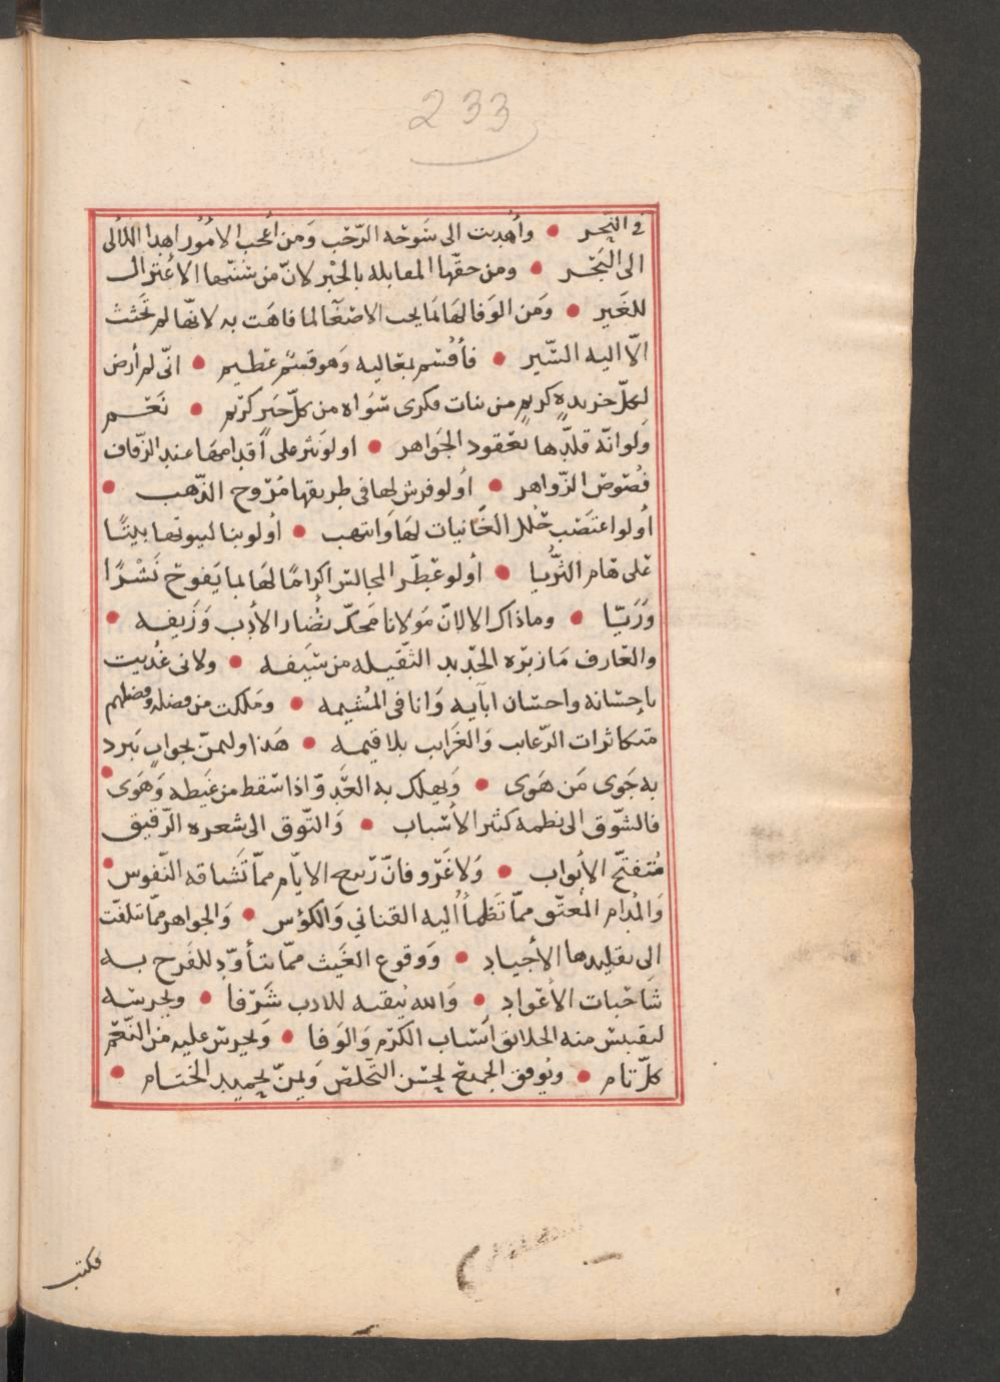 233
في البحر • وأهديت الى سوحه الرحب ومن أعجب الأمور اهدا اللآلى
الى البحر • ومن حقها المقابله بالجبر لانّ من سننها الاعتزال
للغير • ومن الوفا لها ما يجب الاصغا لما فاهت به لانها لم تحثث
الّا اليه السّير • فأقسم بمعاليه وهو قسم عظيم • انّى لم أرض
لكلّ خريدةٍ كريم من بنات فكرى سواه من كلّ حبرٍ كريم • نعم
ولو انّه قلّدها بعقود الجواهر • او لو نثر على أقدامها عند الزّفاف
فصوص الزّواهر • أو لو فرش لها فى طريقها مُرّوح الذّهب •
أو لو اغتصب حُلل الغانيات لها وانتهب • أو لو بنا لبيوتها بيتًا
على هام الثريّا • أو لو عطّر المجالس اكرامًا لها بما يفوح نشرًا
وريّا • وما ذاك الا لانّ مولانا محكّ نضار الأدب وزيفه •
والعارف مازبره الحديد الثقيله من سيفه • ولانى غُديت
باحسانه واحسان ابآيه وانا فى المشيمه • وملكت من فضله وفضلهم
متكاثرات الرّغايب والغرايب بلا قيمه • هذا وليمنّ بجوابٍ يبرد
به جوى من هوى • ويهلك به العدوّ اذا سقط من غيظه وهوى •
فالشّوق الى نظمه كثير الأسباب • والتّوق الى شعره الرّقيق
مُتفتّح الأبواب • ولا غرو فانّ ربيع الايّام ممّا تشاقه النّفوس •
والمُدام المُعتّق ممّا تظمأ أليه القنانى والكؤس • والجواهر ممّا تلفّت
الى تقليدها الأجياد • ووقوع الغيث ممّا يتأوّد للفرح به
شاخبات الأعواد • والله يُبقيه للادب شرفا • ويحرسه
ليقتبس منه الخلائق أسباب الكرم والوفا • ويحرس عليه من النّعم
كلّ تام • ويُوفق الجميع لحسن التّخلّص ويمنّ بحميد الختام •
فكتب